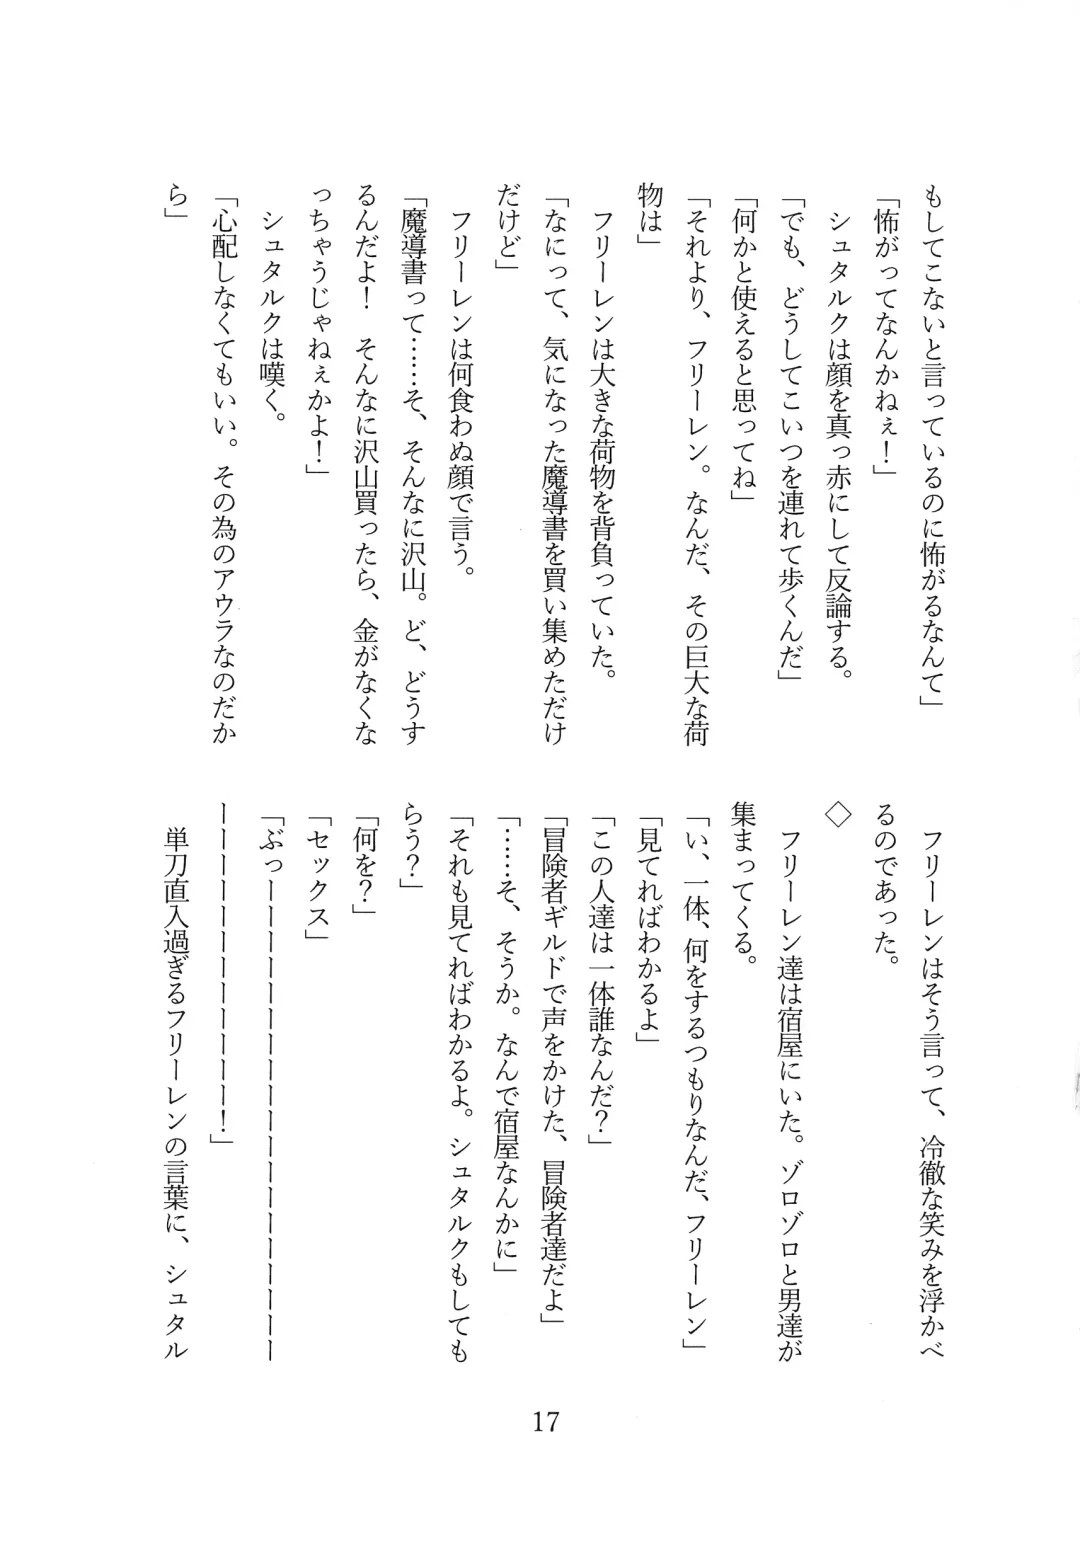 もしてこないと言っているのに怖がるなんて」
「怖がってなんかねぇ！」
　シュタルクは顔を真っ赤にして反論する。
「でも、どうしてこいつを連れて歩くんだ」
「何かと使えると思ってね」
「それより、フリーレン。なんだ、その巨大な荷
物は」
　フリーレンは大きな荷物を背負っていた。
「なにって、気になった魔導書を買い集めただけ
だけど」
　フリーレンは何食わぬ顔で言う。
「魔導書って……そ、そんなに沢山。ど、どうす
るんだよ！　そんなに沢山買ったら、金がなくな
っちゃうじゃねぇかよ！」
　シュタルクは嘆く。
「心配しなくてもいい。その為のアウラなのだか
ら」
　フリーレンはそう言って、冷徹な笑みを浮かべ
るのであった。
◇
　フリーレン達は宿屋にいた。ゾロゾロと男達が
集まってくる。
「い、一体、何をするつもりなんだ、フリーレン」
「見てればわかるよ」
「この人達は一体誰なんだ？」
「冒険者ギルドで声をかけた、冒険者達だよ」
「……そ、そうか。なんで宿屋なんかに」
「それも見てればわかるよ。シュタルクもしても
らう？」
「何を？」
「セックス」
「ぶっーーーーーーーーーーーーーーーーーーー
ーーーーーーーーーーーー！」
　単刀直入過ぎるフリーレンの言葉に、シュタル
17